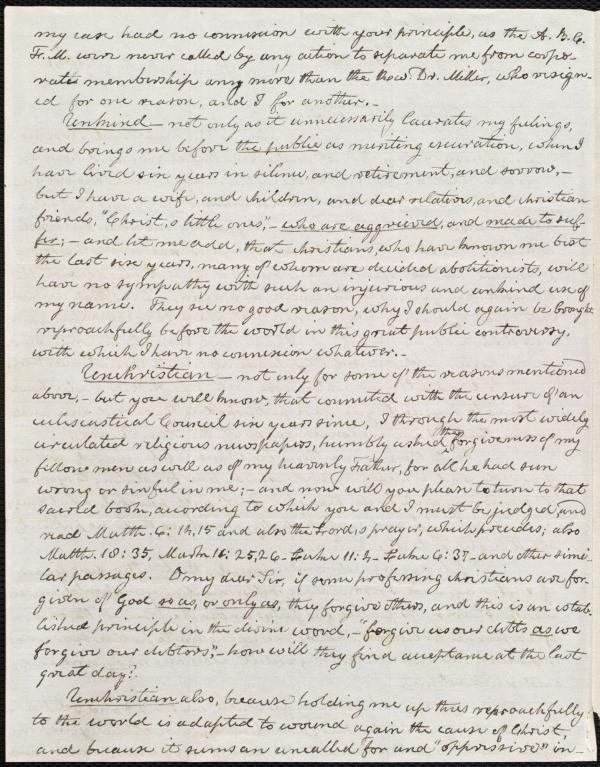 my case had no connexion with your principle, as the A. B. C.
Fr. M. were never called by any action to separate me from corpo-
rate membership any more than the Rev. Dr. Meller, who resign-
ed for one reason, and I for another.-
Unkind - not only as it unnecessarily lacerates my feelings,
and brings me before the public as meriting execration, when I
have lived six years in silence, and retirement, and sorrow,-
but I have a wife, and children, and dear relatives, and christian
friends, "Christ,s little ones",- who are aggrieved, and made to suf-
fer; - and let me add, that christians, who have known me best
the last six years, many of whom are decided abolitionists, will
have no sympathy with such an injurious and unkind use of
my name. They see no good reason, why I should again be brought
reproachfully before the world in this great public controversy,
with which I have no connexion whatever.-
Unchristian - not only for some of the reasons mentioned
above,- but you well know, that connected with the censure of an
ecclesiastical Council six years since, I through the most widely
circulated religious newspapers, humbly asked the forgiveness of my
fellow men as well as of my heavenly Father, for all he had seen
wrong or sinful in me; - and now will you please to turn to that
sacred book, according to which you and I must be judged, and
read Matth. 6: 14, 15 and also the Lord,s prayer, which precedes; also
Matth. 18: 35, Mark 11: 25, 26 - Luke 11: 4 - Luke 6: 37 - and other simi-
lar passages. O my dear Sir, if some professing christians are for-
given of God so as, or only as, they forgive others, and this is an estab-
lished principle in the divine word, - "forgive us our debts as we
forgive our debtors",- how will they find acceptance at the last
great day?
Unchristian also, because holding me up thus reproachfully
to the world is adapted to wound again the cause of Christ,
and because it seems an uncalled for and "oppressive" in-